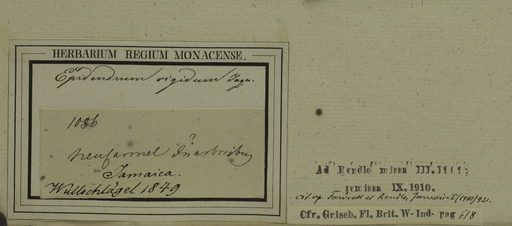 HERBARIUM REGIUM MONACENSE.
Epidendrum rigidum Jacq.
1086
?
in arboribus
Jamaica.
Wullschlägel 1849
Ad Rendle missa III.1909;
remissa IX.1910.
cit. ap. Fawcett et Rendle, Jamaica I (1910) 92.
Cfr. Griseb. Fl. Brit. W-Ind. pag 618